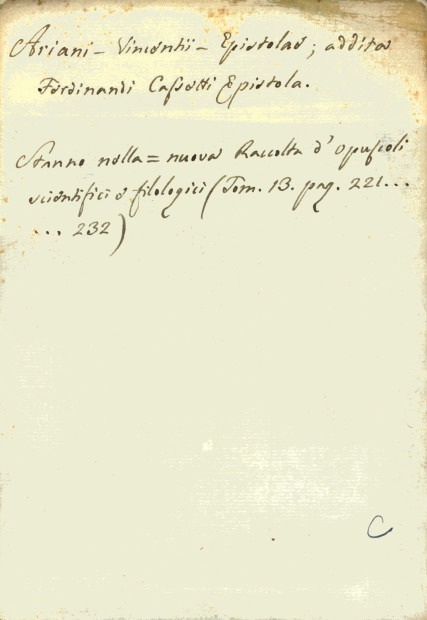 Ariani - Vincentii - Epistolae; addita
Ferdinandi Cassetti Epistola.
Stanno nella = nuova Raccolta d'opuscoli
scientifici e filologici (Tom. 13. pag. 221...
... 232)
C